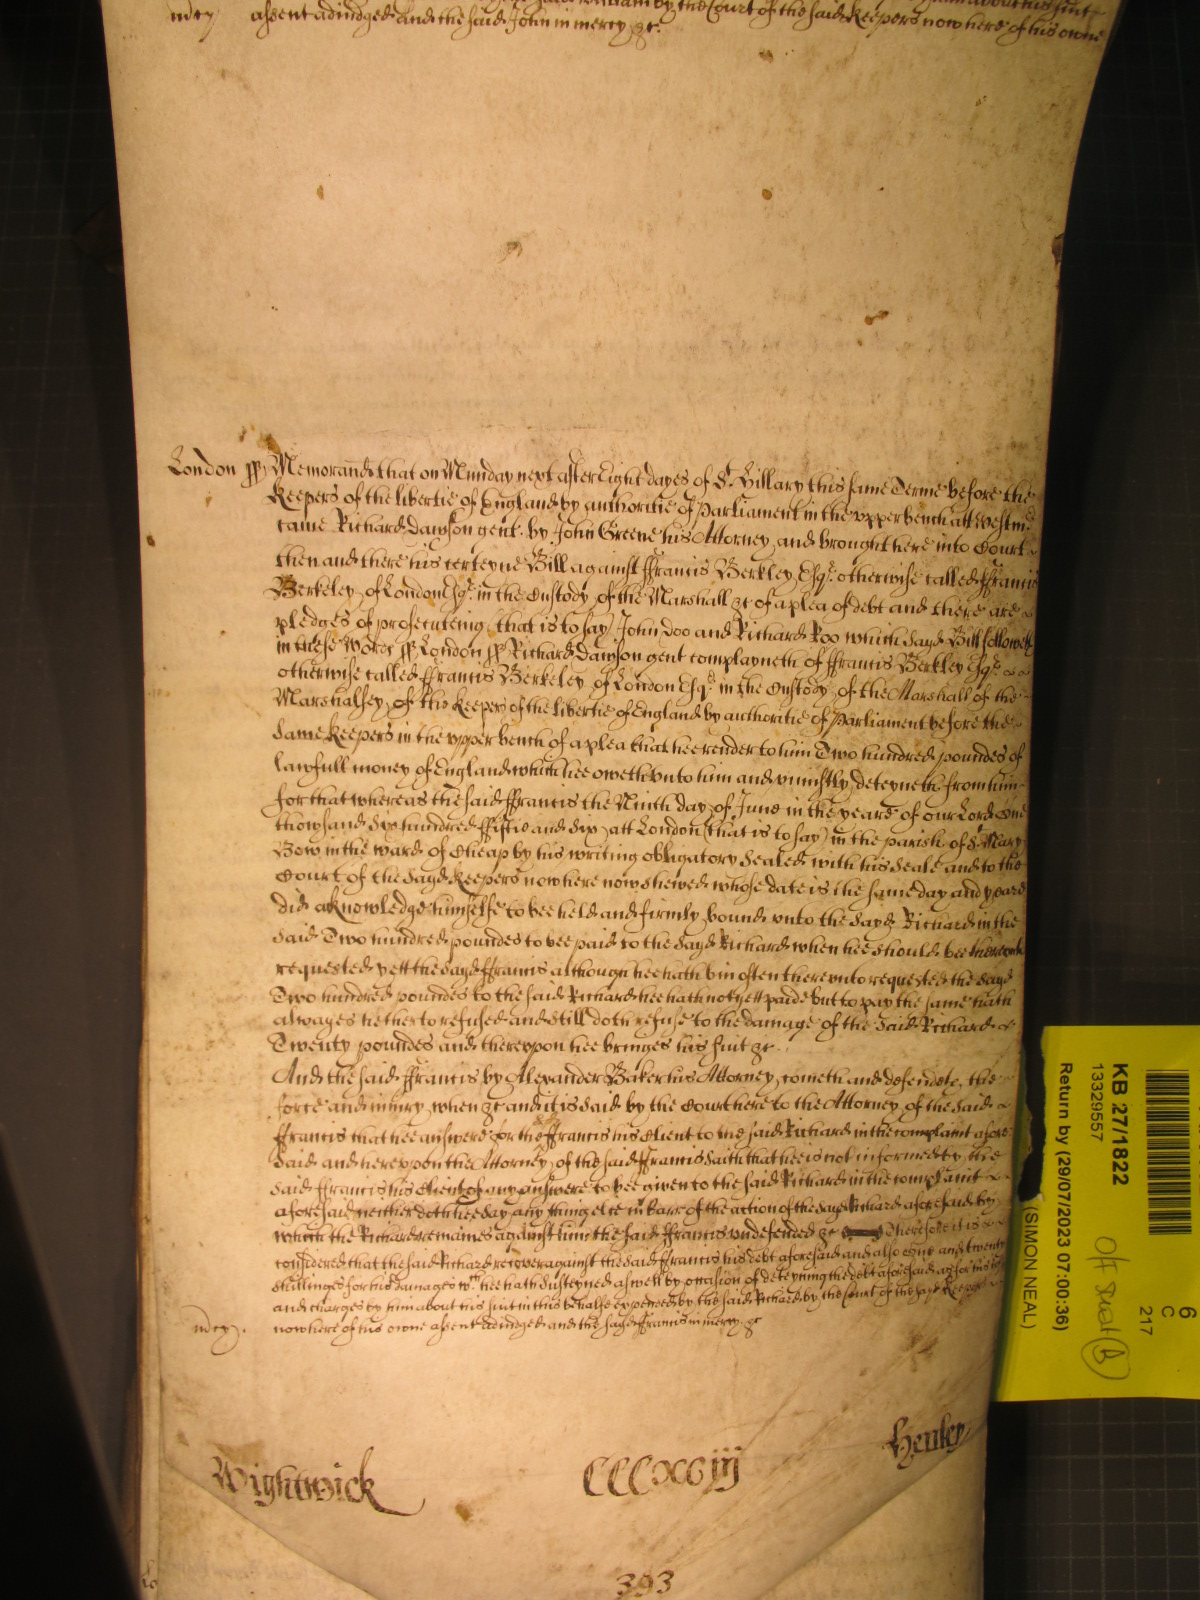 about his suit
by the Court of the said Keepers now here of his owne
mcy assent adiudged and the said John in mercy &c.
London ss Memorand that on Munday next after Eight dayes of St. Hillary this same Terme before the
Keepers of the libertie of England by authoritie of Parliament in the vpper bench att Westmr
came Richard Dawson gent. by John Greene his Attorney and brought here into Court
then and there his certeyne Bill against ffrancis Berkley Esqr. otherwise called ffrancis
Berkeley of London Esqr. in the Custody of the Marshall &c of a plea of debt and there are
pledges of prosecuteing (that is to say) John Doo and Richard Roo which sayd Bill followeth
in these words ss London ss Richard Dawson gent complayneth of ffrancis Berkley Esqr.
otherwise called ffrancis Berkeley of London Esqr. in the Custody of the Marshall of the
Marshalsey of the Keepers of the libertie of England by authoritie of Parliament before the
same Keepers in the vpper bench of a plea that hee render to him Two hundred poundes of
lawfull money of England which hee oweth vnto him and vniustly deteyneth from him
for that whereas the said ffrancis the Ninth day of June in the yeare of our Lord One
thowsand six hundred ffiftie and six att London (that is to say) in the parish of St. Mary
Bow in the ward of Cheap by his writing obligatory sealed with his seale and to the
Court of the sayd Keepers now here now shewed whose date is the same day and yeare
did acknowledge himselfe to bee held and firmly bound vnto the sayd Richard in the
said Two hundred poundes to bee paid to the sayd Richard when hee should bee therevnto
requested yett the sayd ffrancis although hee hath bin often therevnto requested the sayd
Two hundred poundes to the said Richard hee hath not yett paide but to pay the same hath
alwayes hetherto refused and still doth refuse to the damage of the said Richard
Twenty poundes and therevpon hee bringes his suit &c.
And the said ffrancis by Alexander Baker his Attorney cometh and defendeth the
force and iniury when &c and it is said by the Court here to the Attorney of the said
ffrancis that hee answere for the ffrancis his Client to the said Richard in the complaint afore
said and herevpon the Attorney of the said ffrancis saith that hee is not informed by the
said ffrancis his Client of any answere to bee given to the said Richard in the complaint
aforesaid neither doth hee say any thing else in barr of the action of the sayd Richard aforesaid by
which the Richard remaines against him the said ffrancis vndefended &c Therefore it is
considered that the said Richard recover against the said ffrancis his debt aforesaid and also one and twenty
shillinges for his damages wch hee hath susteyned aswell by occasion of deteyning the debt aforesaid as for his
and charges by him about his suit in this behalfe expended by the said Richard by the Court of the sayd Keepers
mcy. now here of his owne assent adiudged and the sayd ffrancis in mercy &c
Wightwick CCCXCiij Henley
393
KB 27/1822
13329557
Return by (29/07/2023 07:00:36)
(SIMON NEAL)
6
C
217